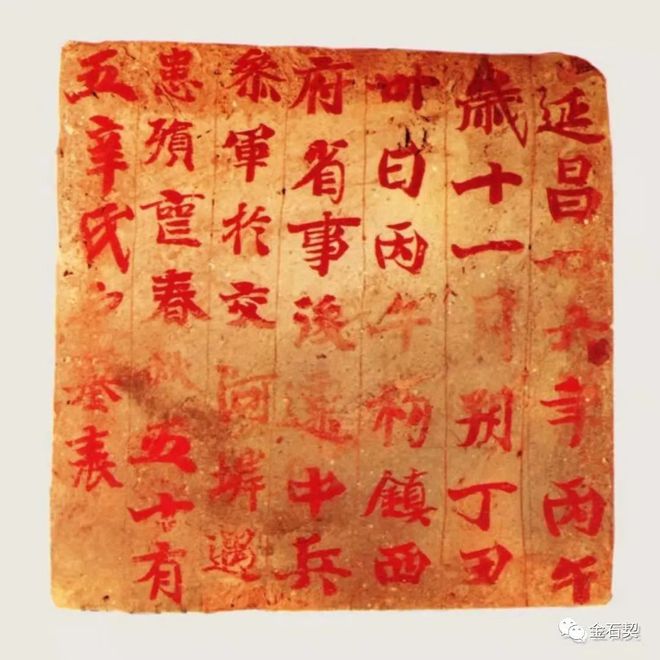 延昌廿六年丙午
歲十一月朔丁丑
卅日丙午初鎮西
府省事後遷中兵
叅軍於交河遇
患殞喪春秋五十有
五辛氏之墓表
金石契